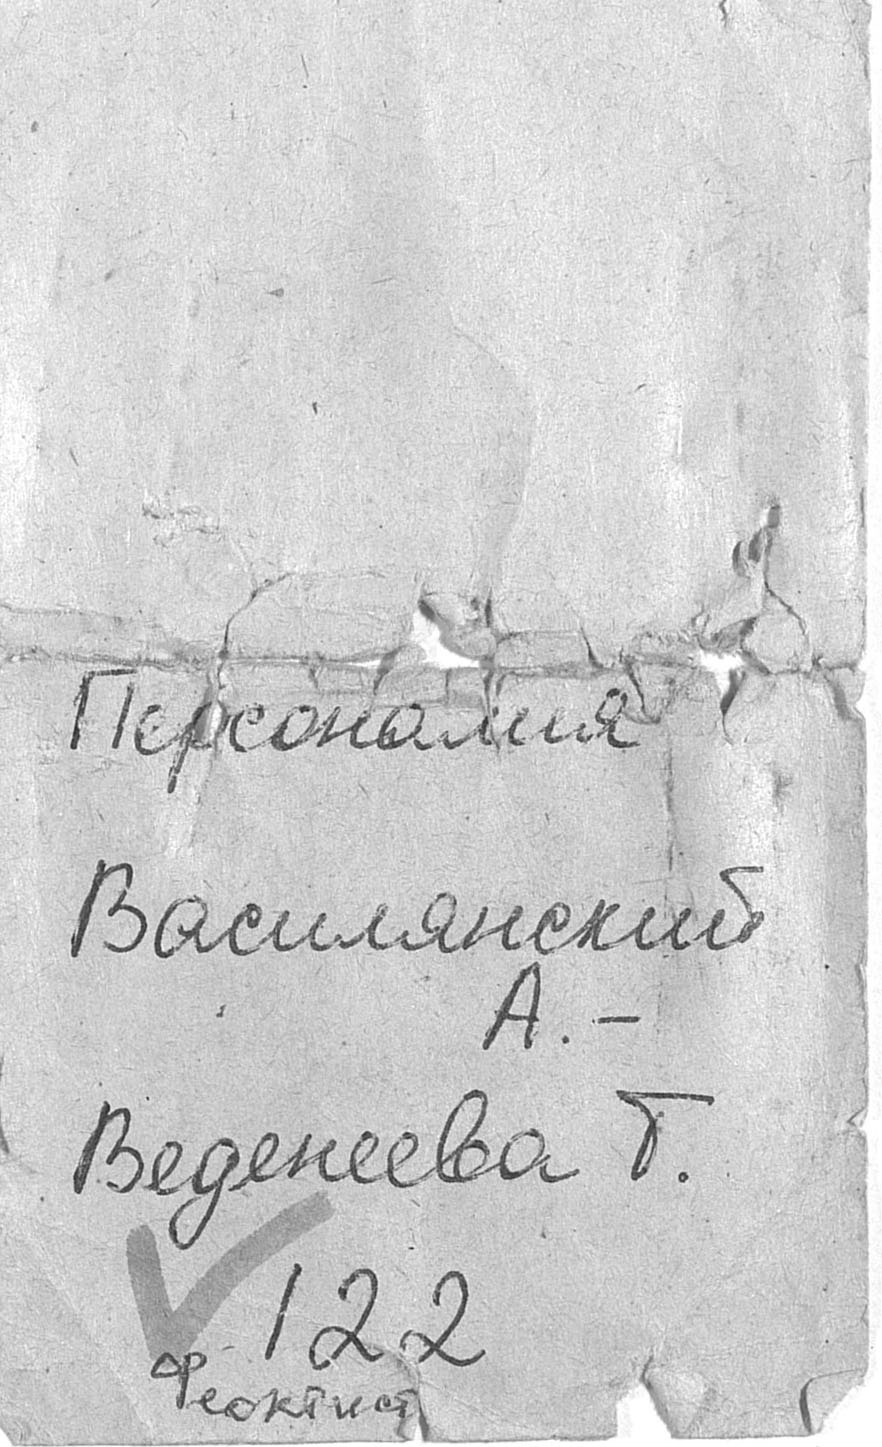 Персоналия
Василянский
А. –
Веденеева Т.
122
Феоктист